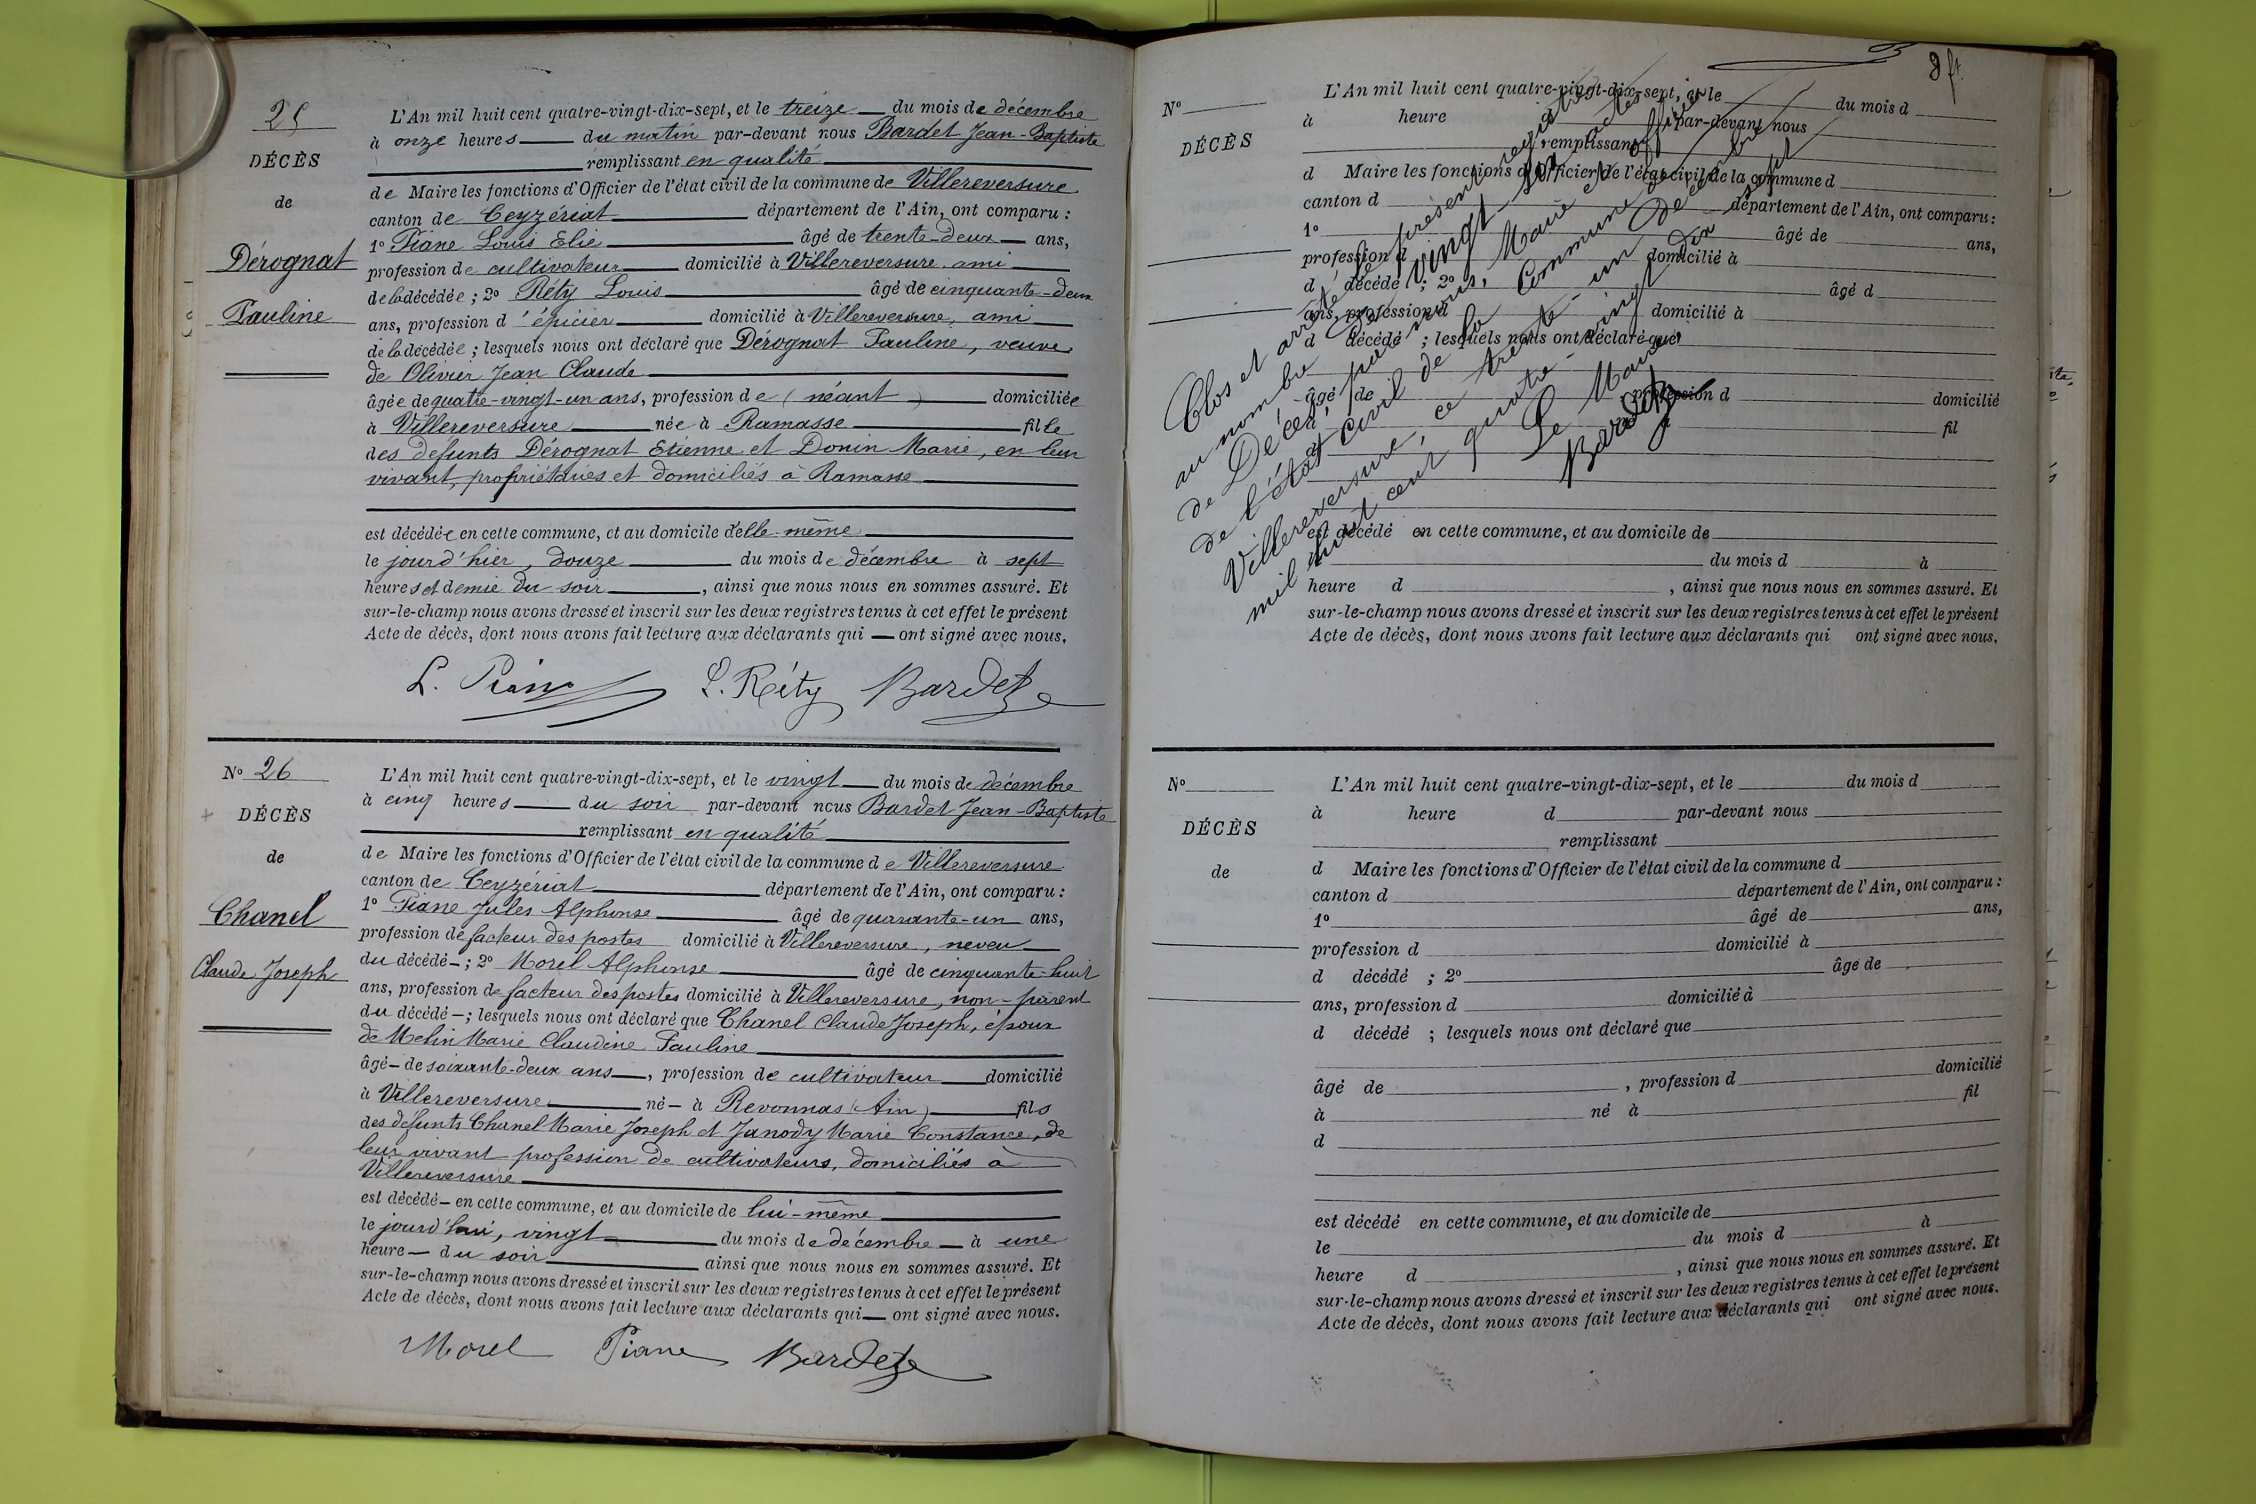 25
DÉCÈS
de
Dérognat
Pauline
L'An mil huit cent quatre-vingt-dix-sept, et le treize du mois de décembre
à onze heures du matin par-devant nous Bardet Jean-Baptiste
remplissant en qualité
de Maire les fonctions d'Officier de l'état civil de la commune de Villereversure
canton de Ceyzériat département de l'Ain, ont comparu :
1º Piane Louis Elie âgé de trente-deux ans,
profession de cultivateur domicilié à Villereversure ami
de la décédée ; 2º Réty Louis âgé de cinquante-deux
ans, profession d'épicier domicilié à Villereversure, ami
de la décédée ; lesquels nous ont déclaré que Dérognat Pauline, veuve
de Olivier Jean Claude
âgée de quatre-vingt-un ans, profession de (néant) domiciliée
à Villereversure née à Ramasse fille
des défunts Dérognat Etienne et Donin Marie, en leur
vivant, propriétaires et domiciliés à Ramasse
est décédée en cette commune, et au domicile d'elle-même
le jourd'hier, douze du mois de décembre à sept
heures et demie du soir, ainsi que nous nous en sommes assuré. Et
sur-le-champ nous avons dressé et inscrit sur les deux registres tenus à cet effet le présent
Acte de décès, dont nous avons fait lecture aux déclarants qui — ont signé avec nous.
L. Piane L. Réty Bardet
Nº 26
DÉCÈS
de
Chanel
Claude Joseph
L'An mil huit cent quatre-vingt-dix-sept, et le vingt du mois de décembre
à cinq heures du soir par-devant nous Bardet Jean-Baptiste
remplissant en qualité
de Maire les fonctions d'Officier de l'état civil de la commune de Villereversure
canton de Ceyzériat département de l'Ain, ont comparu :
1º Piane Jules Alphonse âgé de quarante-un ans,
profession de facteur des postes domicilié à Villereversure, neveu
du décédé ; 2º Morel Alphonse âgé de cinquante-huit
ans, profession de facteur des postes domicilié à Villereversure, non-parent
du décédé ; lesquels nous ont déclaré que Chanel Claude Joseph, époux
de Melin Marie Claudine Pauline
âgé de soixante-deux ans, profession de cultivateur domicilié
à Villereversure né à Revonnas (Ain) fils
des défunts Chanel Marie Joseph et Janody Marie Constance, de
leur vivant profession de cultivateurs, domiciliés à
Villereversure
est décédé en cette commune, et au domicile de lui-même
le jourd'hui, vingt du mois de décembre à une
heure du soir ainsi que nous nous en sommes assuré. Et
sur-le-champ nous avons dressé et inscrit sur les deux registres tenus à cet effet le présent
Acte de décès, dont nous avons fait lecture aux déclarants qui — ont signé avec nous.
Morel Piane Bardet
Nº
DÉCÈS
L'An mil huit cent quatre-vingt-dix-sept, et le du mois d
à heure par-devant nous
remplissant
d Maire les fonctions d'Officier de l'état civil de la commune d
canton d département de l'Ain, ont comparu :
1º âgé de ans,
profession d domicilié à
d décédé ; 2º âgé d
ans, profession d domicilié à
d décédé ; lesquels nous ont déclaré que
âgé de profession d domicilié
fil
est décédé en cette commune, et au domicile de
du mois d à
heure d , ainsi que nous nous en sommes assuré. Et
sur-le-champ nous avons dressé et inscrit sur les deux registres tenus à cet effet le présent
Acte de décès, dont nous avons fait lecture aux déclarants qui ont signé avec nous.
Clos et arrêté le présent registre
au nombre de vingt-six actes
de Décès par nous, Maire et officier
de l'état civil de la Commune de
Villereversure, ce trente-un Décembre
mil huit cent quatre-vingt dix sept
Le Maire,
Bardet
Nº
DÉCÈS
de
L'An mil huit cent quatre-vingt-dix-sept, et le du mois d
à heure d par-devant nous
remplissant
d Maire les fonctions d'Officier de l'état civil de la commune d
canton d département de l'Ain, ont comparu :
1º âgé de ans,
profession d domicilié à
d décédé ; 2º âgé de
ans, profession d domicilié à
d décédé ; lesquels nous ont déclaré que
âgé de , profession d domicilié
à né à fil
d
est décédé en cette commune, et au domicile de
le du mois d à
heure d , ainsi que nous nous en sommes assuré. Et
sur-le-champ nous avons dressé et inscrit sur les deux registres tenus à cet effet le présent
Acte de décès, dont nous avons fait lecture aux déclarants qui ont signé avec nous.